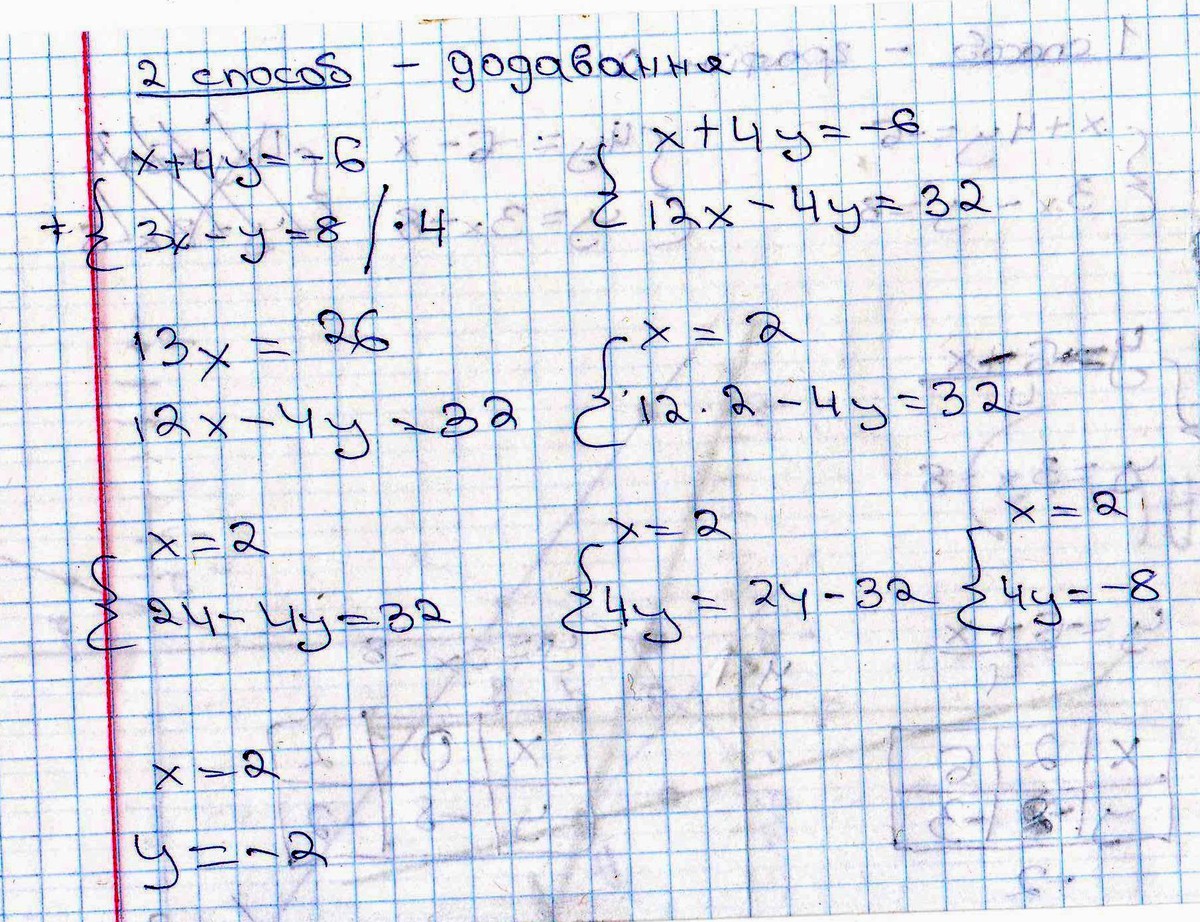 2 спосіб - додавання
x+4y=-6
+ { 3x-y=8 /·4
{ x+4y=-6
12x-4y=32
13x=26
12x-4y=32
{ x=2
12·2-4y=32
{ x=2
24-4y=32
{ x=2
4y=24-32
{ x=2
4y=-8
x=2
y=-2